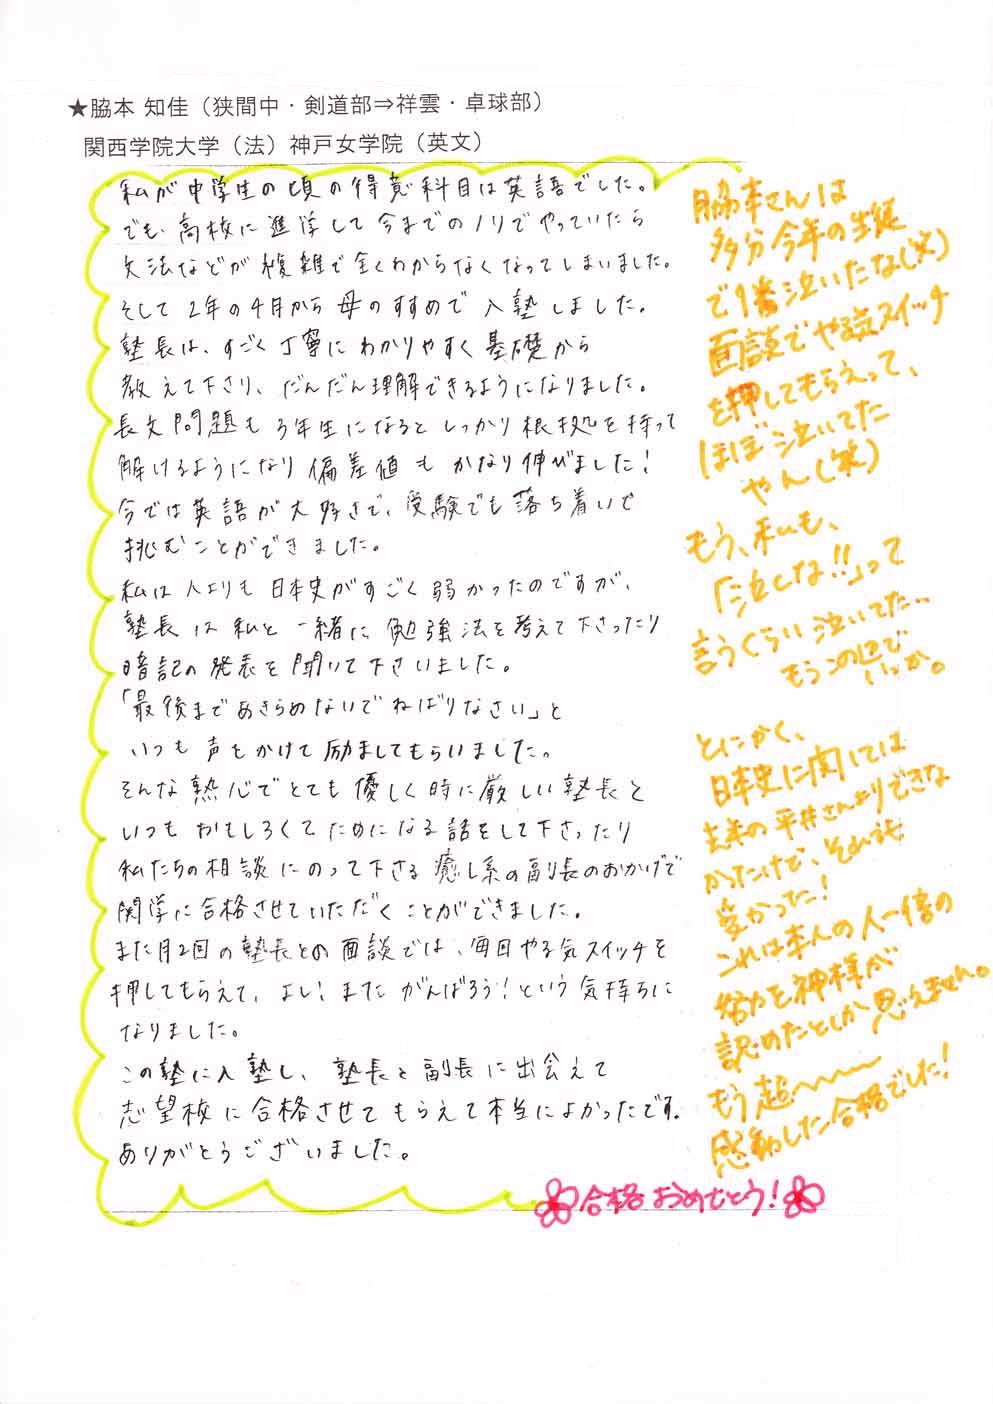 ★脇本 知佳（狭間中・剣道部⇒祥雲・卓球部）
関西学院大学（法）神戸女学院（英文）
私が中学生の頃の得意科目は英語でした。
でも、高校に進学して今までのノリでやっていたら
文法などが複雑で全くわからなくなってしまいました。
そして2年の4月から母のすすめで入塾しました。
塾長は、すごく丁寧にわかりやすく基礎から
教えて下さり、だんだん理解できるようになりました。
長文問題も3年生になるとしっかり根拠を持って
解けるようになり偏差値もかなり伸びました!
今では英語が大好きで、受験でも落ち着いて
挑むことができました。
私は人よりも日本史がすごく弱かったのですが、
塾長は私と一緒に勉強法を考えて下さったり
暗記の発表を聞いて下さいました。
「最後まであきらめないでねばりなさい」と
いつも声をかけて励ましてもらいました。
そんな熱心でとても優しく時に厳しい塾長と
いつもおもしろくてためになる話をして下さったり
私たちの相談にのって下さる癒し系の副長のおかげで
関学に合格させていただくことができました。
また月2回の塾長との面談では、毎回やる気スイッチを
押してもらえて、よし!またがんばろう!という気持ちに
なりました。
この塾に入塾し、塾長と副長に出会えて
志望校に合格させてもらえて本当によかったです。
ありがとうございました。
脇本さんは
多分今年の生徒
で1番泣いたな(笑)
面談でやる気スイッチ
を押してもらえって、
ほぼ泣いてた
やん(笑)
もう、私も、
「泣くな!!」って
言うくらい泣いてた…
もうこの辺で
いっか。
とにかく、
日本史に関しては
去年の平井さんよりできな
かったけど、それでも
受かった!
これは本人の人一倍の
努力を神様が
認めたとしか思えません。
もう超〜〜
感動した合格でした!
合格おめでとう!